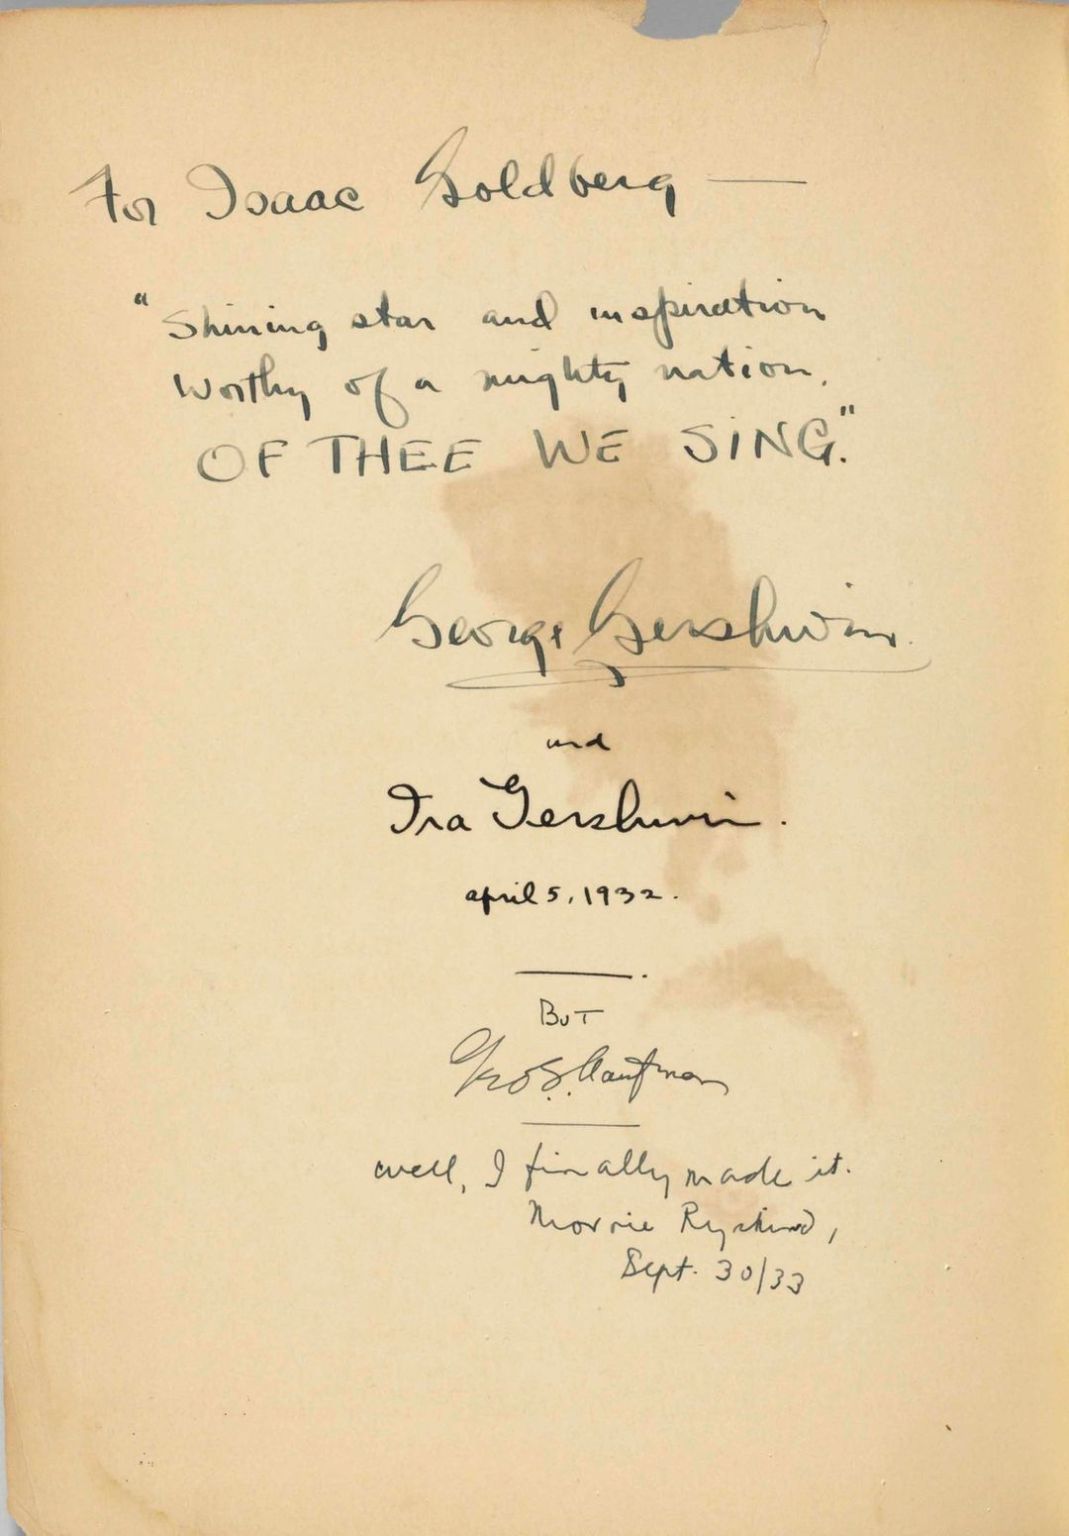 For Isaac Goldberg —
"Shining star and inspiration
Worthy of a mighty nation,
OF THEE WE SING."
George Gershwin
and
Ira Gershwin.
april 5, 1932.
BUT
Geo S. Kaufman
well, I finally made it.
Morrie Ryskind,
Sept. 30/33